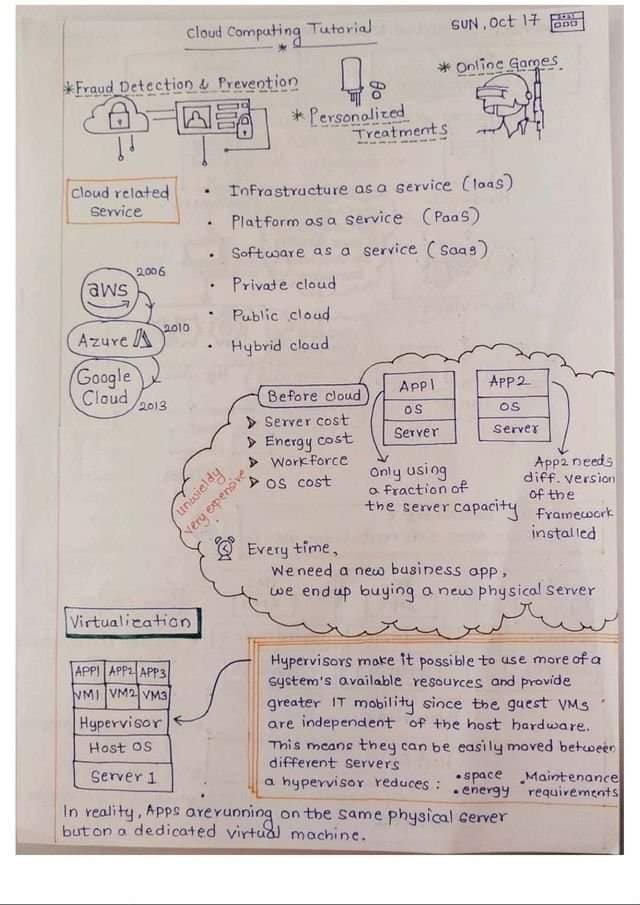 Cloud Computing Tutorial
SUN, Oct 17
*Fraud Detection & Prevention
* Personalized
Treatments
* Online Games
Cloud related
service
• Infrastructure as a service (Iaas)
• Platform as a service (PaaS)
• Software as a service (Saas)
• Private cloud
• Public cloud
• Hybrid cloud
aws
2006
Azure
2010
Google
Cloud
2013
Before cloud
➤ Server cost
➤ Energy cost
➤ Workforce
➤ OS cost
unwieldy
very expensive
APP1
OS
Server
APP2
OS
Server
Only using
a fraction of
the server capacity
App2 needs
diff. version
of the
framework
installed
Every time,
We need a new business app,
we end up buying a new physical server
Virtualization
APP1 APP2 APP3
VM1 VM2 VM3
Hypervisor
Host OS
Server 1
Hypervisors make it possible to use more of a
system's available resources and provide
greater IT mobility since the guest VMs
are independent of the host hardware.
This means they can be easily moved between
different servers
a hypervisor reduces : • space • Maintenance
• energy requirements
In reality, Apps are running on the same physical server
but on a dedicated virtual machine.